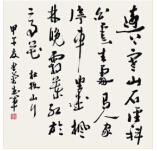 遠上寒山石徑斜
白雲生處有人家
停車坐愛楓
林晚霜葉紅於
二月花 杜牧山行
甲子